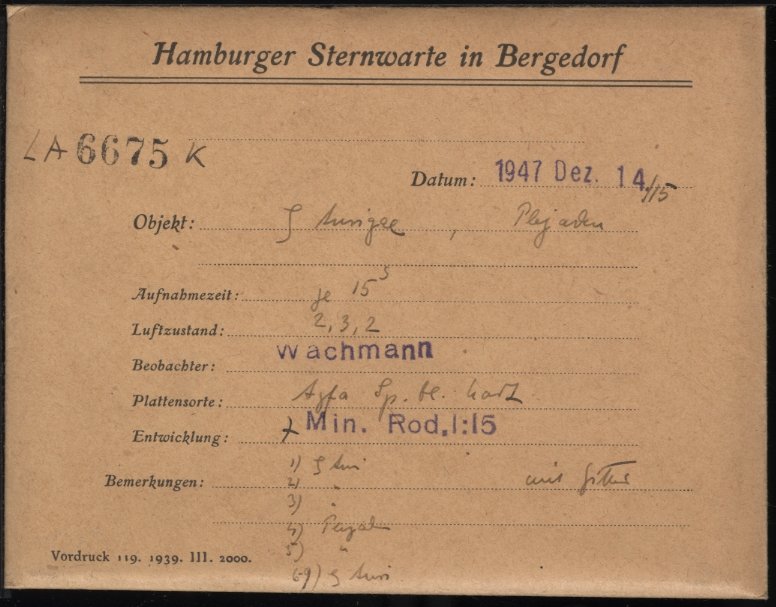 Hamburger Sternwarte in Bergedorf
LA 6675 K
Datum: 1947 Dez. 14./15
Objekt: ζ Aurigae, Plejaden
Aufnahmezeit: je 15ˢ
Luftzustand: 2, 3, 2
Beobachter: Wachmann
Plattensorte: Agfa Sp. bl. hart
Entwicklung: Min. Rod. 1:15
Bemerkungen: 1) ζ Aur mit Gitter
2) "
3) "
4) Plejaden
5) "
6-9) ζ Auri
Vordruck 119. 1939. III. 2000.